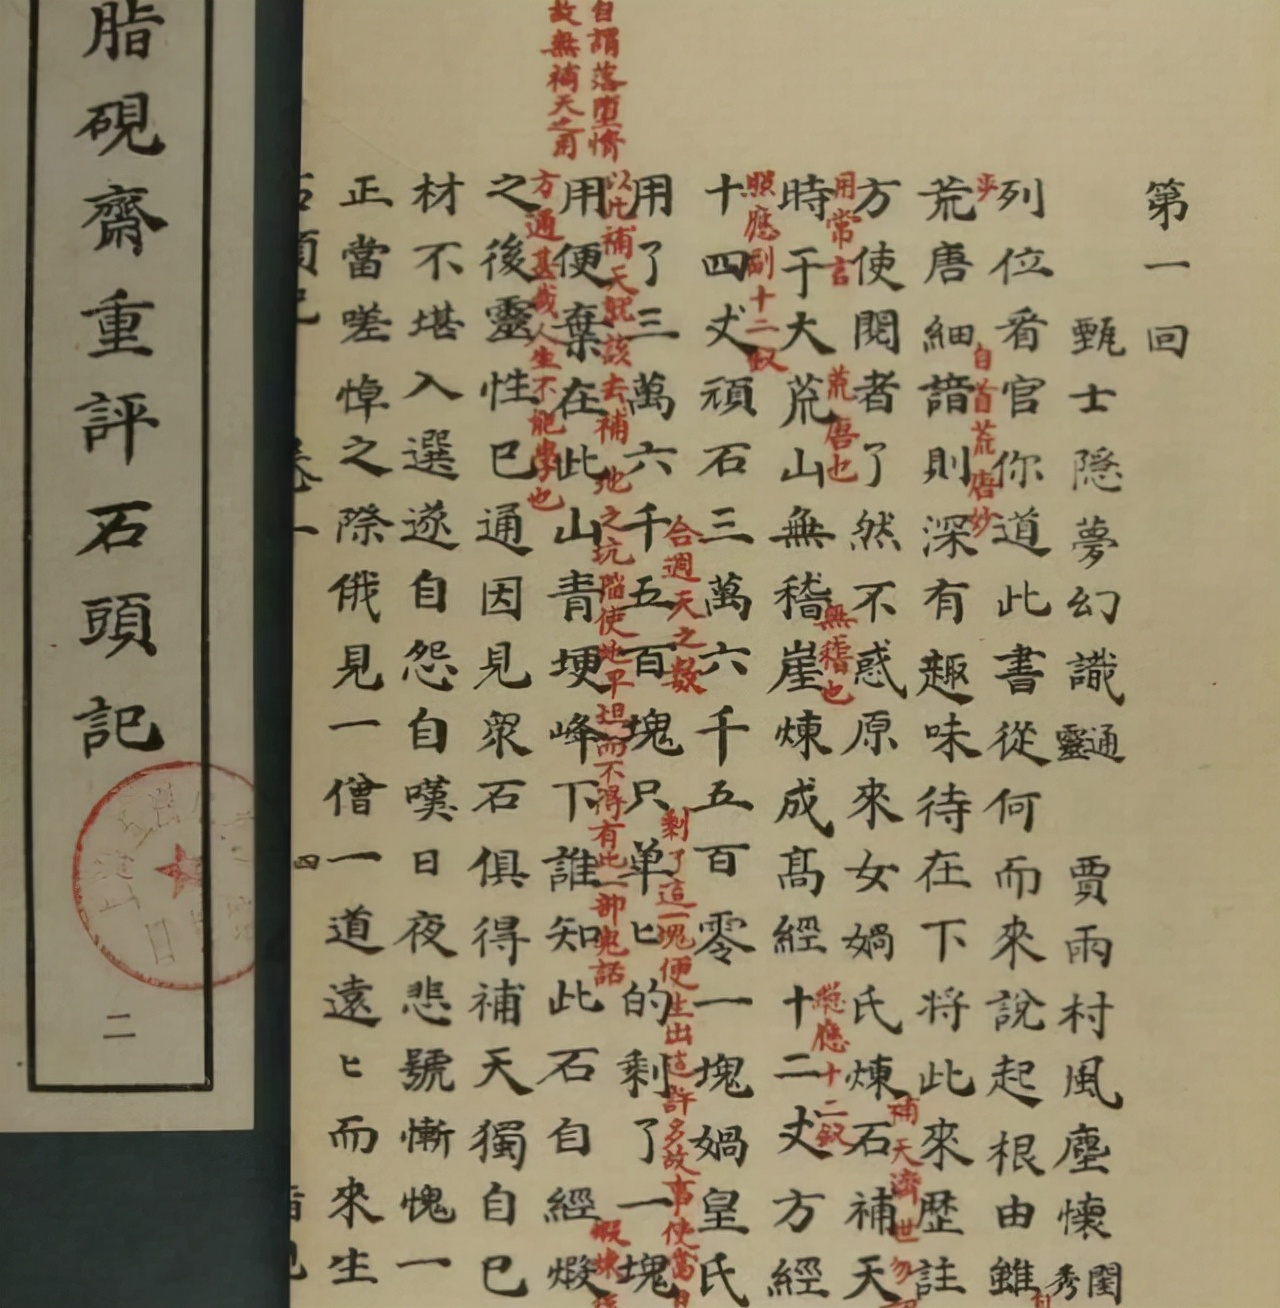 脂硯齋重評石頭記
二
第一回
甄士隱夢幻識通靈 賈雨村風塵懷閨秀
列位看官你道此書從何而來說起根由雖
自首荒唐妙
荒唐細諳則深有趣味待在下将此來歷註
補天濟世勿
方使閱者了然不惑原來女媧氏煉石補天
用常言
荒唐也
無稽也
總應十二釵
時于大荒山無稽崖煉成高經十二丈方經
照應副十二釵
十四丈頑石三萬六千五百零一塊媧皇氏
合週天之數
剩了這一塊便生出這許多故事使當日
用了三萬六千五百塊只单匕的剩了一塊
自謂落墮情
故無補天之用
以此補天就該去補地之坑陷使地平坦而不得有此一部鬼話
煆煉後
用便棄在此山青埂峰下誰知此石自經煆
方通甚哉人生不能學也
之後靈性已通因見眾石俱得補天獨自己
材不堪入選遂自怨自嘆日夜悲號慚愧一
正當嗟悼之際俄見一僧一道遠匕而來生
四